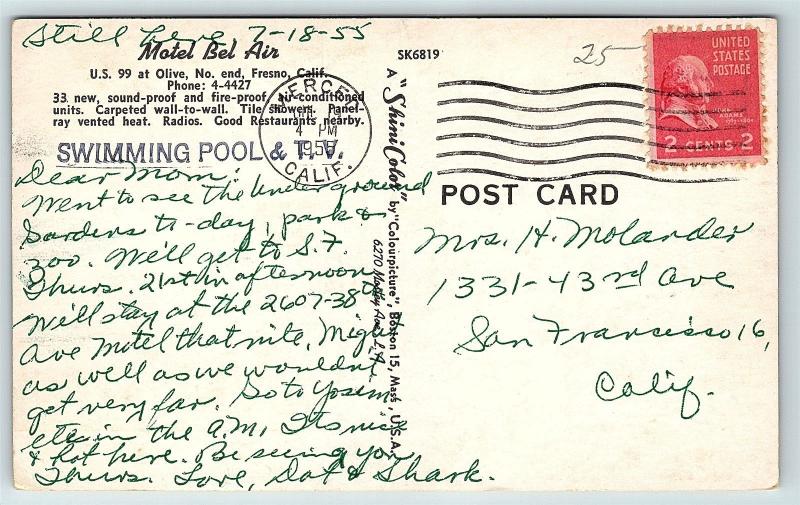 Still here 7-18-55
Motel Bel Air
U.S. 99 at Olive, No. end, Fresno, Calif.
Phone: 4-4427
33 new, sound-proof and fire-proof air-conditioned
units. Carpeted wall-to-wall. Tile showers. Panel-
ray vented heat. Radios. Good Restaurants nearby.
SWIMMING POOL & T.V.
Dear Mom:
Went to see the Underground
Gardens to-day, park &
zoo. We'll get to S.F.
Thurs. 21st in afternoon
Will stay at the 2607-38th
Ave Motel that nite. Might
as well as we wouldn't
get very far. So to Yosem
ete in the a.m. Its nice
& hot here. Be seeing you
Thurs. Love, Dot & Shark.
SK6819
A "ShiniColor" by "Colourpicture", Boston 15, Mass., U.S.A.
6270 Ave., L.A.
MERCED
4 PM
1955
CALIF.
25
UNITED
STATES
POSTAGE
JOHN
ADAMS
2 CENTS 2
POST CARD
Mrs. H. Molander
1331-43rd Ave
San Francisco 16,
Calif.